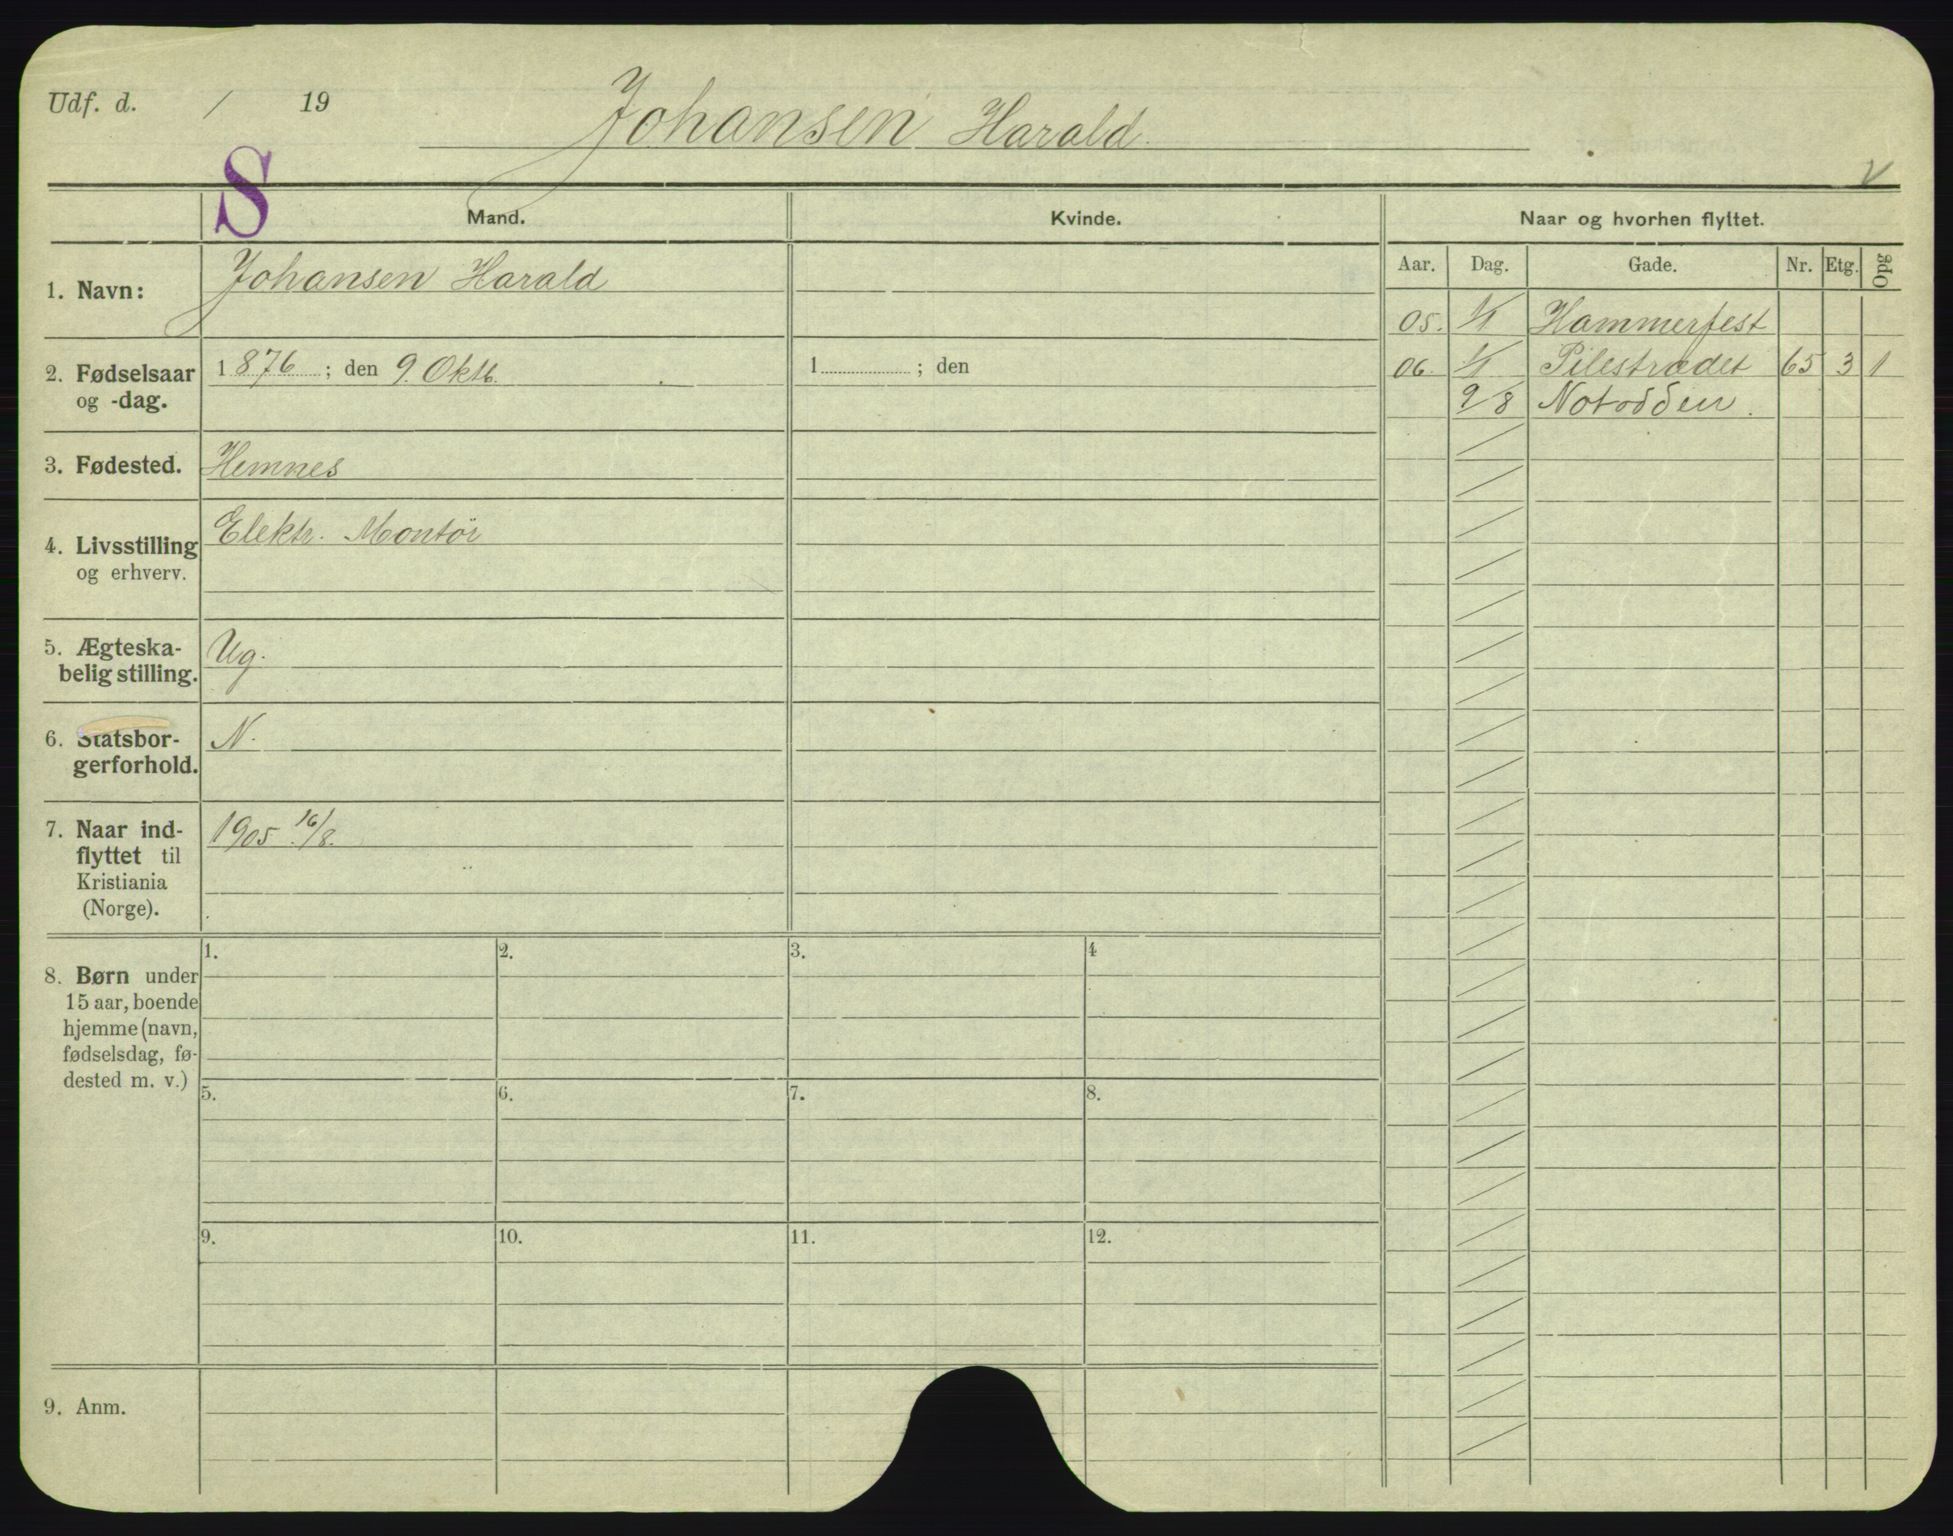 Udf. d. / 19
Johansen Harald
S
V
Mand.
Kvinde.
Naar og hvorhen flyttet.
Aar. Dag. Gade. Nr. Etg. Opg
1. Navn: Johansen Harald
05. 1/1 Hammerfest
2. Fødselsaar og -dag.
1876; den 9. Oktb.
1 ; den
06. 1/1 Pilestrædet 65 3 1
9/8 Notodden.
3. Fødested. Hemnes
4. Livsstilling og erhverv.
Elektr. Montör
5. Ægteska-
belig stilling.
Ug.
6. Statsbor-
gerforhold.
N.
7. Naar ind-
flyttet til
Kristiania
(Norge).
1905 16/8.
8. Børn under
15 aar, boende
hjemme (navn,
fødselsdag, fø-
dested m. v.)
1. 2. 3. 4
5. 6. 7. 8.
9. 10. 11. 12.
9. Anm.